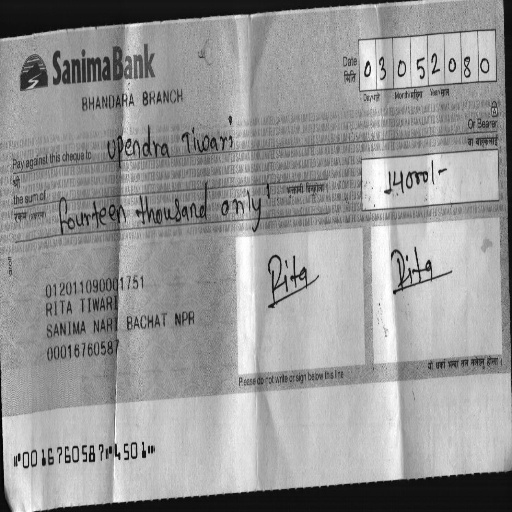 Sanima Bank
BHANDARA BRANCH
Date
मिति
03052080
Day/गते Month/महिना Year/साल
Pay against this cheque to Upendra Tiwari
Or Bearer
वा वाहकलाई
श्री
the sum of
fourteen thousand only'
14000/-
012011090001751
RITA TIWARI
SANIMA NARI BACHAT NPR
00016760587
Rita
Rita
Please do not write or sign below this line
⑈0016760587⑈4501⑈